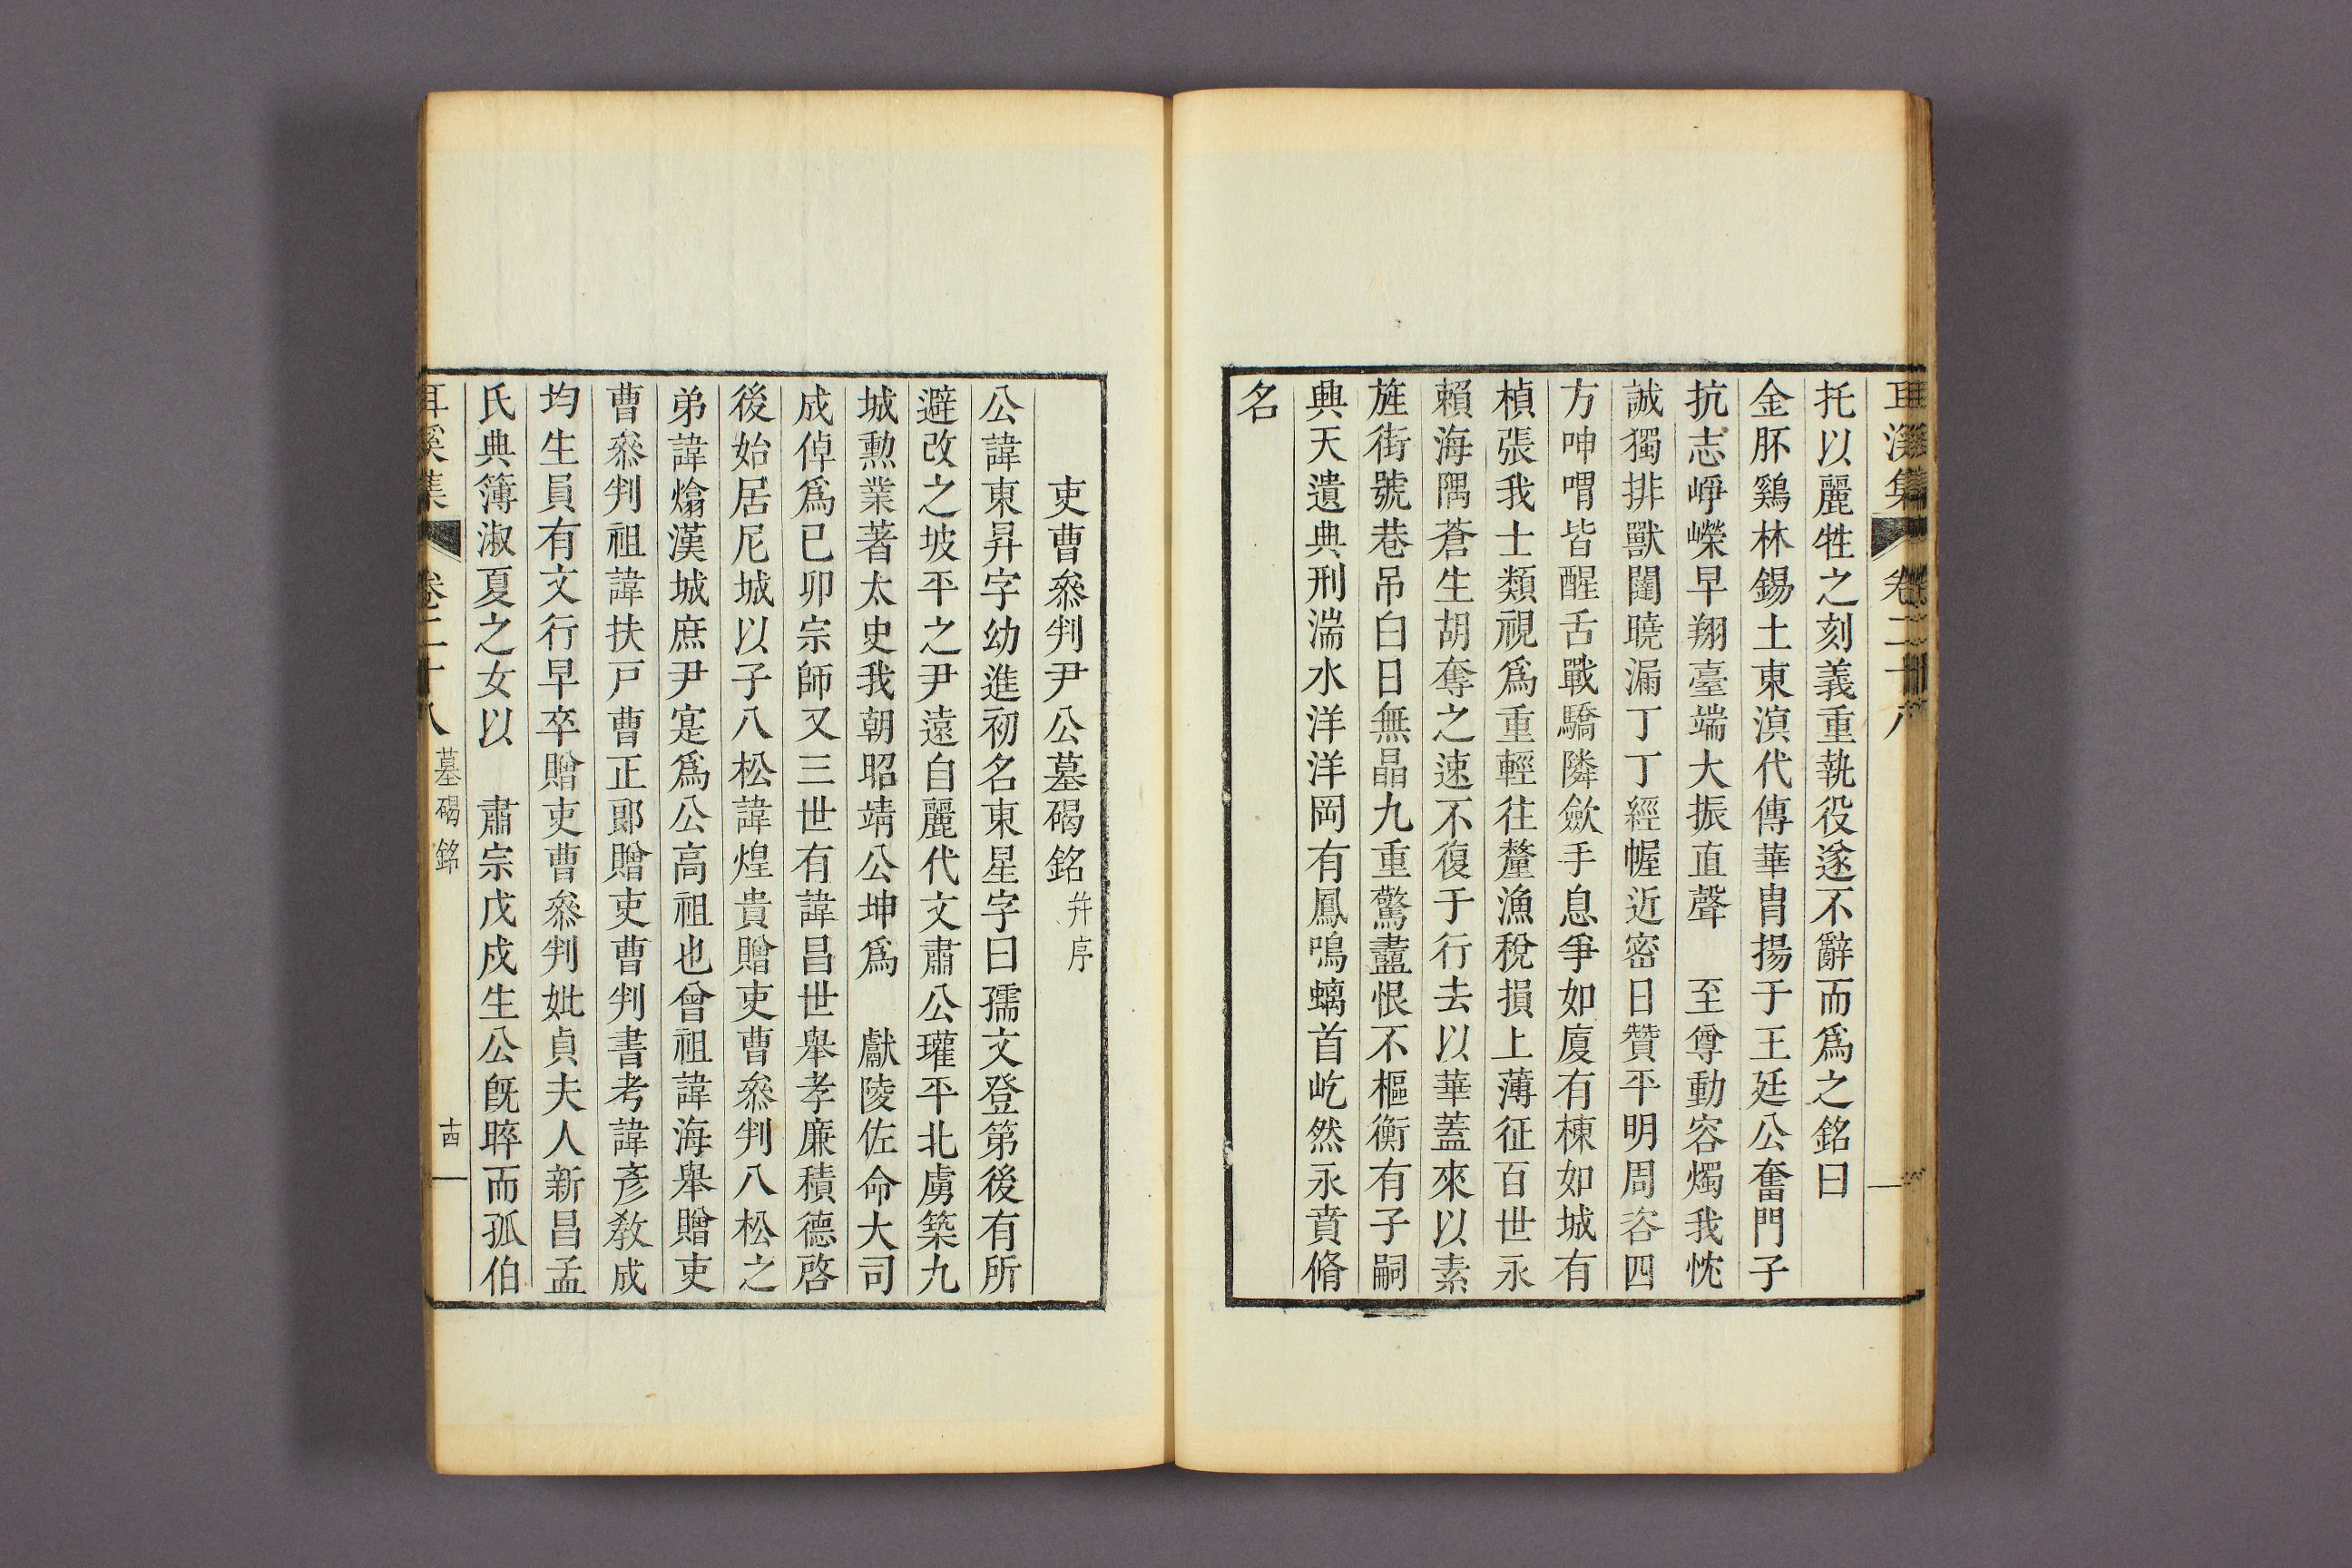 耳溪集 卷二十八
托以麗牲之刻義重執役遂不辭而爲之銘曰
金肧鷄林錫土東濵代傳華胄揚于王廷公奮門子
抗志崢嶸早翔臺端大振直聲 至尊動容燭我忱
誠獨排獸闥曉漏丁丁經幄近密日贊平明周咨四
方呻喟皆醒舌戰驕隣歛手息爭如廈有棟如城有
楨張我士類視爲重輕往釐漁稅損上薄征百世永
賴海隅蒼生胡奪之速不復于行去以華蓋來以素
旌街號巷吊白日無晶九重驚衋恨不樞衡有子嗣
興天遺典刑湍水洋洋岡有鳳鳴螭首屹然永賁脩
名
吏曹叅判尹公墓碣銘 幷序
公諱東昇字幼進初名東星字曰孺文登第後有所
避改之坡平之尹遠自麗代文肅公瓘平北虜築九
城勲業著太史我朝昭靖公坤爲 獻陵佐命大司
成倬爲已卯宗師又三世有諱昌世舉孝廉積德啓
後始居尼城以子八松諱煌貴贈吏曹叅判八松之
弟諱熻漢城庶尹寔爲公高祖也曾祖諱海舉贈吏
曹叅判祖諱扶戸曹正郎贈吏曹判書考諱彥教成
均生員有文行早卒贈吏曹叅判妣貞夫人新昌孟
氏典簿淑夏之女以 肅宗戊戍生公旣晬而孤伯
耳溪集 卷二十八 墓碣銘 十四